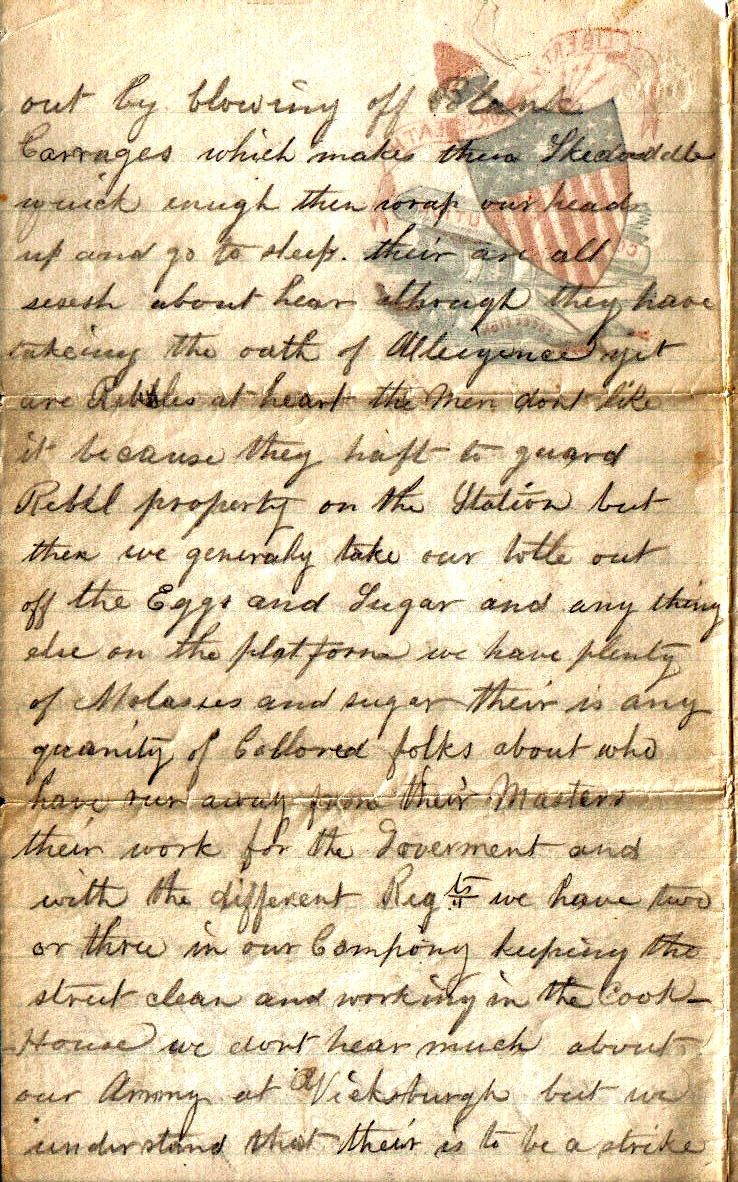 out by blowing off Blank
Carrages which makes them Skedaddle
quick enugh then wrap our heads
up and go to sleep. their are all
sesesh about hear although they have
takeing the oath of Alleigence yet
are Rebbles at heart the Men dont like
it because they haft to guard
Rebel property on the Station but
then we generaly take our totle out
off the Eggs and Sugar and any thing
else on the platform we have plenty
of Molasses and sugar their is any
quanity of Collored folks about who
have run away from their Masters
their work for the Goverment and
with the different Regts we have two
or three in our Compony keeping the
street clean and working in the Cook-
House we dont hear much about
our Army at Vicksburgh but we
understand that their is to be a strike
LIBERTY